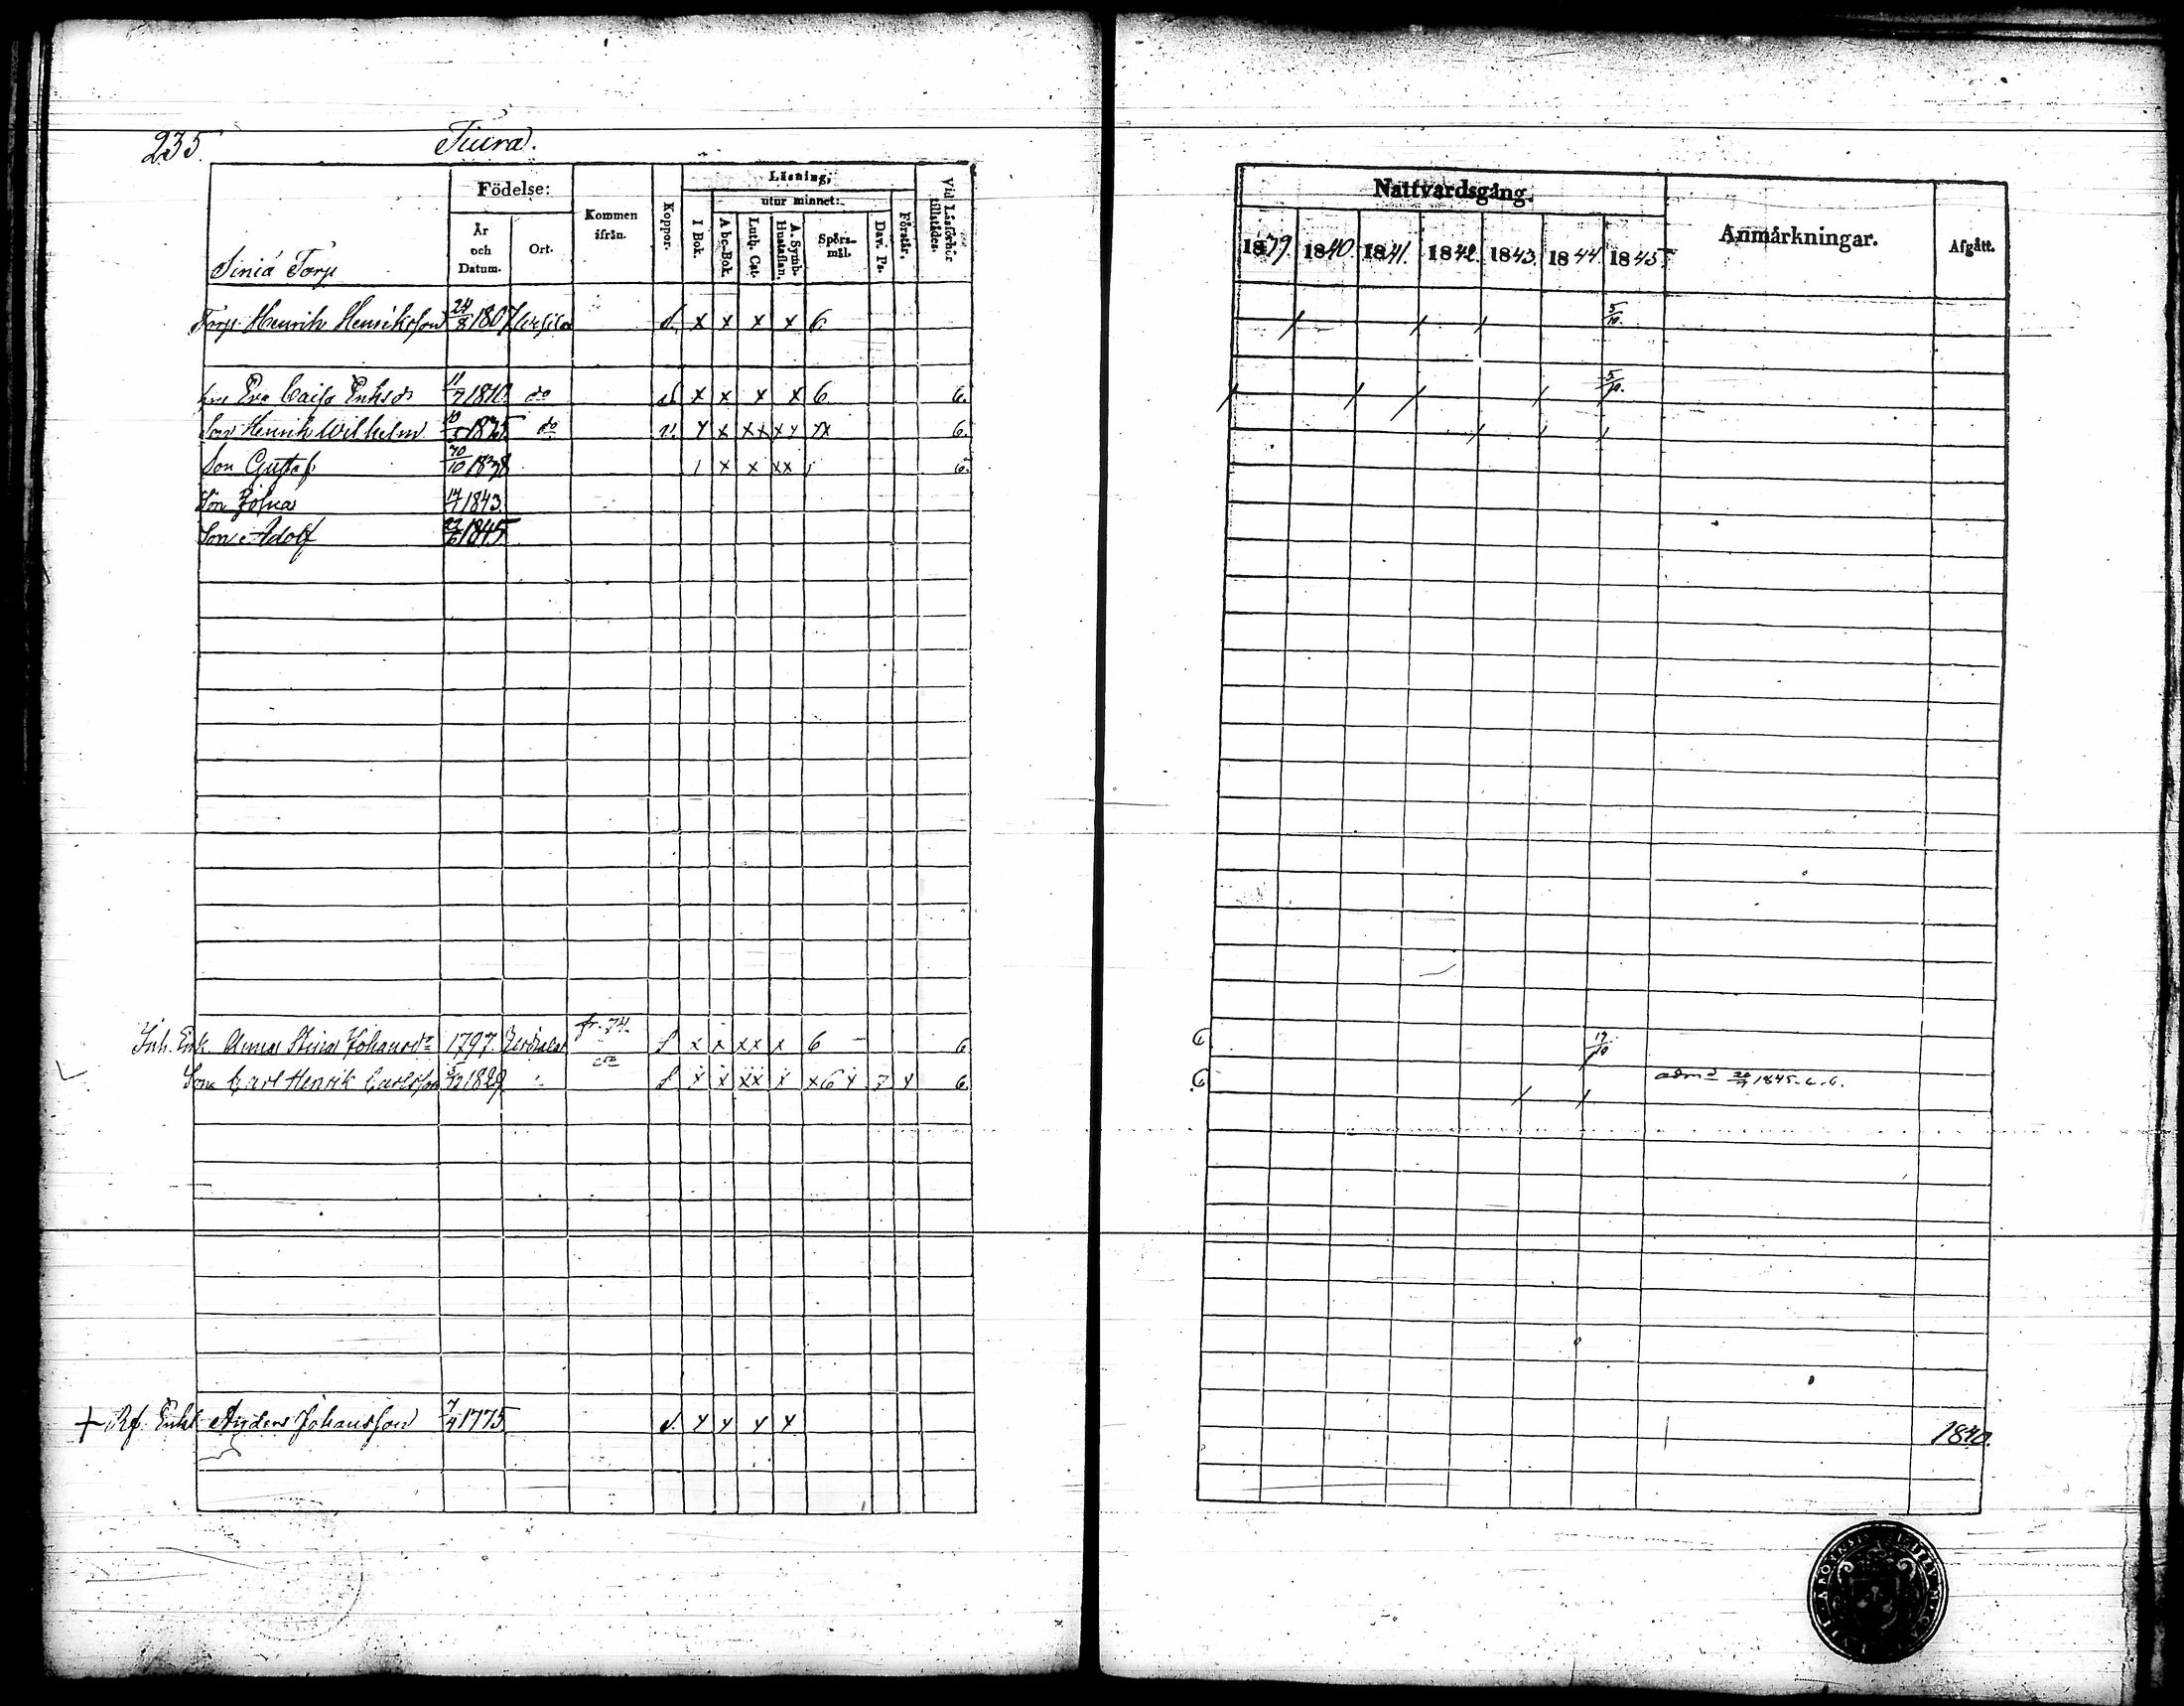 235. Tiura.
Sinia Torp
Födelse:
År och Datum.
Ort.
Kommen ifrån.
Koppor.
Läsning,
I Bok.
utur minnet:
A bc-Bok.
Luth. Cat.
A. Symb. Hustaflan.
Spörs-mål.
Dav. Ps.
Förstår.
Vid Läsförhör tillstädes.
Nattvardsgång.
1839. 1840. 1841. 1842. 1843. 1844. 1845.
Anmärkningar.
Afgått.
Torp. Henrik Henriksson 24/8 1807 x x x x 6. 5/10.
Eva Caisa Eriksdr 11/7 1810. do x x x x 6. 6. 5/10.
Son Henrik Wilhelm 10/5 1835 do v. x x xx xx xx 6.
Son Gustaf 10/10 1838 x x xx 6.
Son Josua 14/1 1843.
Son Adolf 22/6 1845
Inh. Enk. Anna Stina Johansdr 1797. fr. 74. x x xx x 6 6 17/10
Son Carl Henrik Carlsson 5/12 1829 x x xx x x6x 7 x 6 1845.
+ Rf. Enkl Anders Johansson 7/4 1775 v. x x x x 1840.